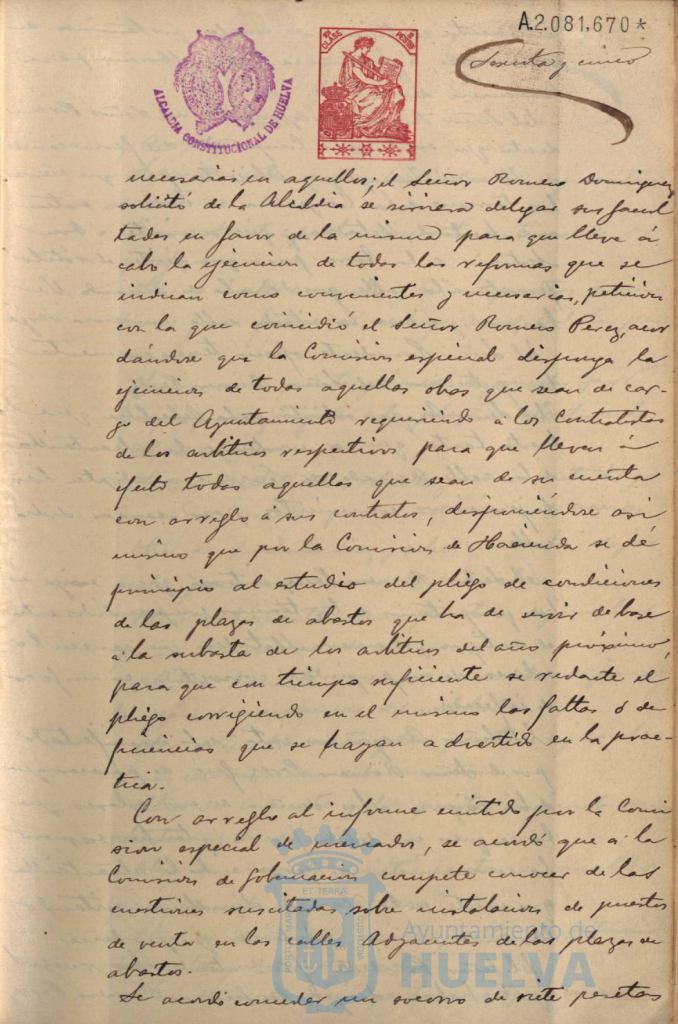 A.2.081,670*
Sesenta y cinco
ALCALDIA CONSTITUCIONAL DE HUELVA
CLASE
necesarias en aquellos; el Señor Romero Dominguez
solicitó de la Alcaldia se sirviera delegar sus facul
tades en favor de la misma para que lleve á
cabo la ejecucion de todas las reformas que se
indican como convenientes y necesarias, peticion
con la que coincidió el Señor Romero Perez, acor
dándose que la Comision especial disponga la
ejecucion de todas aquellas obras que sean de car-
go del Ayuntamiento requiriendo á los Contratistas
de los arbitrios respectivos para que lleven á
efecto todas aquellas que sean de su cuenta
con arreglo á sus contratos, disponiéndose asi
mismo que por la Comision de Hacienda se dé
principio al estudio del pliego de condiciones
de las plazas de abastos que ha de servir de base
á la subasta de los arbitrios del año próximo,
para que con tiempo suficiente se redacte el
pliego corrigiendo en el mismo las faltas ó de
ficiencias que se hayan advertido en la prac-
tica.
Con arreglo al informe emitido por la Comi
sion especial de mercados, se acordó que á la
Comision de Gobernacion compete conocer de las
cuestiones suscitadas sobre instalacion de puestos
de venta en las calles Adyacentes de las plazas de
abastos.
Se acordó conceder un socorro de siete pesetas
Ayuntamiento de
HUELVA